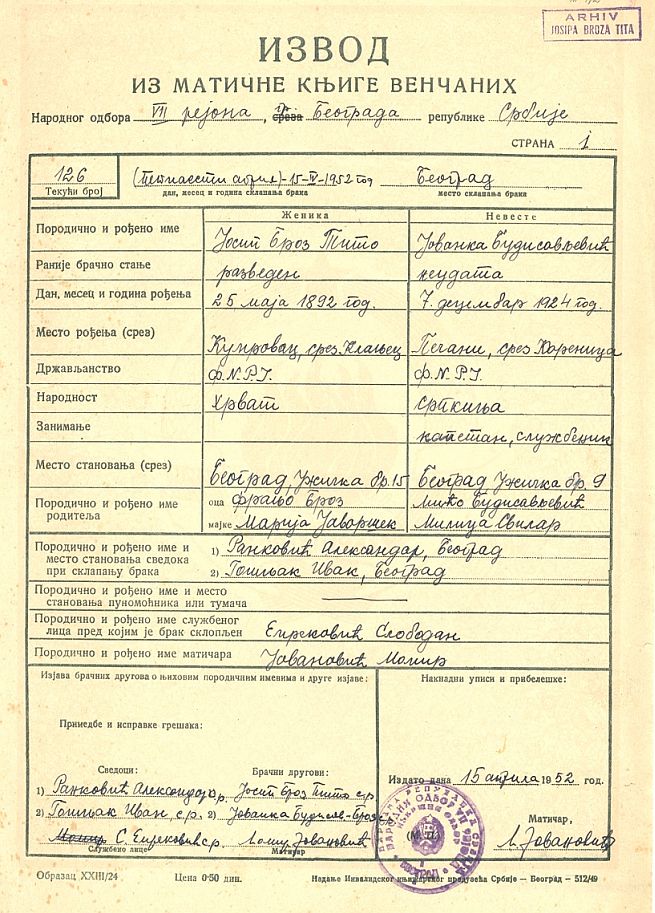 ARHIV
JOSIPA BROZA TITA
ИЗВОД
ИЗ МАТИЧНЕ КЊИГЕ ВЕНЧАНИХ
Народног одбора VII рејона, среза гр. Београда републике Србије
СТРАНА 1
126 (петнаести априла)-15-IV-1952 год Београд
Текући број дан, месец и година склапања брака место склапања брака
Женика Невесте
Породично и рођено име Јосип Броз Тито Јованка Будисављевић
Раније брачно стање разведен неудата
Дан, месец и година рођења 25 маја 1892 год. 7. децембар 1924 год.
Место рођења (срез) Кумровац, срез Клањец Печани, срез Кореница
Држављанство Ф.Н.Р.Ј. Ф.Н.Р.Ј.
Народност Хрват Српкиња
Занимање капетан, службеник
Место становања (срез) Београд, Ужичка бр. 15 Београд Ужичка бр. 9
Породично и рођено име родитеља оца Фрањо Броз Мићо Будисављевић
мајке Марија Јаворшек Милица Свилар
Породично и рођено име и место становања сведока при склапању брака 1) Ранковић Александар, Београд
2) Гошњак Иван, Београд
Породично и рођено име и место становања пуномоћника или тумача
Породично и рођено име службеног лица пред којим је брак склопљен Слободан
Породично и рођено име матичара Јовановић Момир
Изјава брачних другова о њиховим породичним именима и друге изјаве: Накнадни уписи и прибелешке:
Примедбе и исправке грешака:
Сведоци: Брачни другови:
1) Ранковић Александар с.р. Јосип Броз Тито с.р.
2) Гошњак Иван, с.р. 2) Јованка Будисав-Броз
Момир С. с.р. Момир Јовановић
Службено лице Матичар
Издато дана 15 априла 1952 год.
(М. П.) Матичар,
М. Јовановић
Образац XXIII/24 Цена 0·50 дин. Издање Инвалидског књижарског предузећа Србије — Београд — 512/49